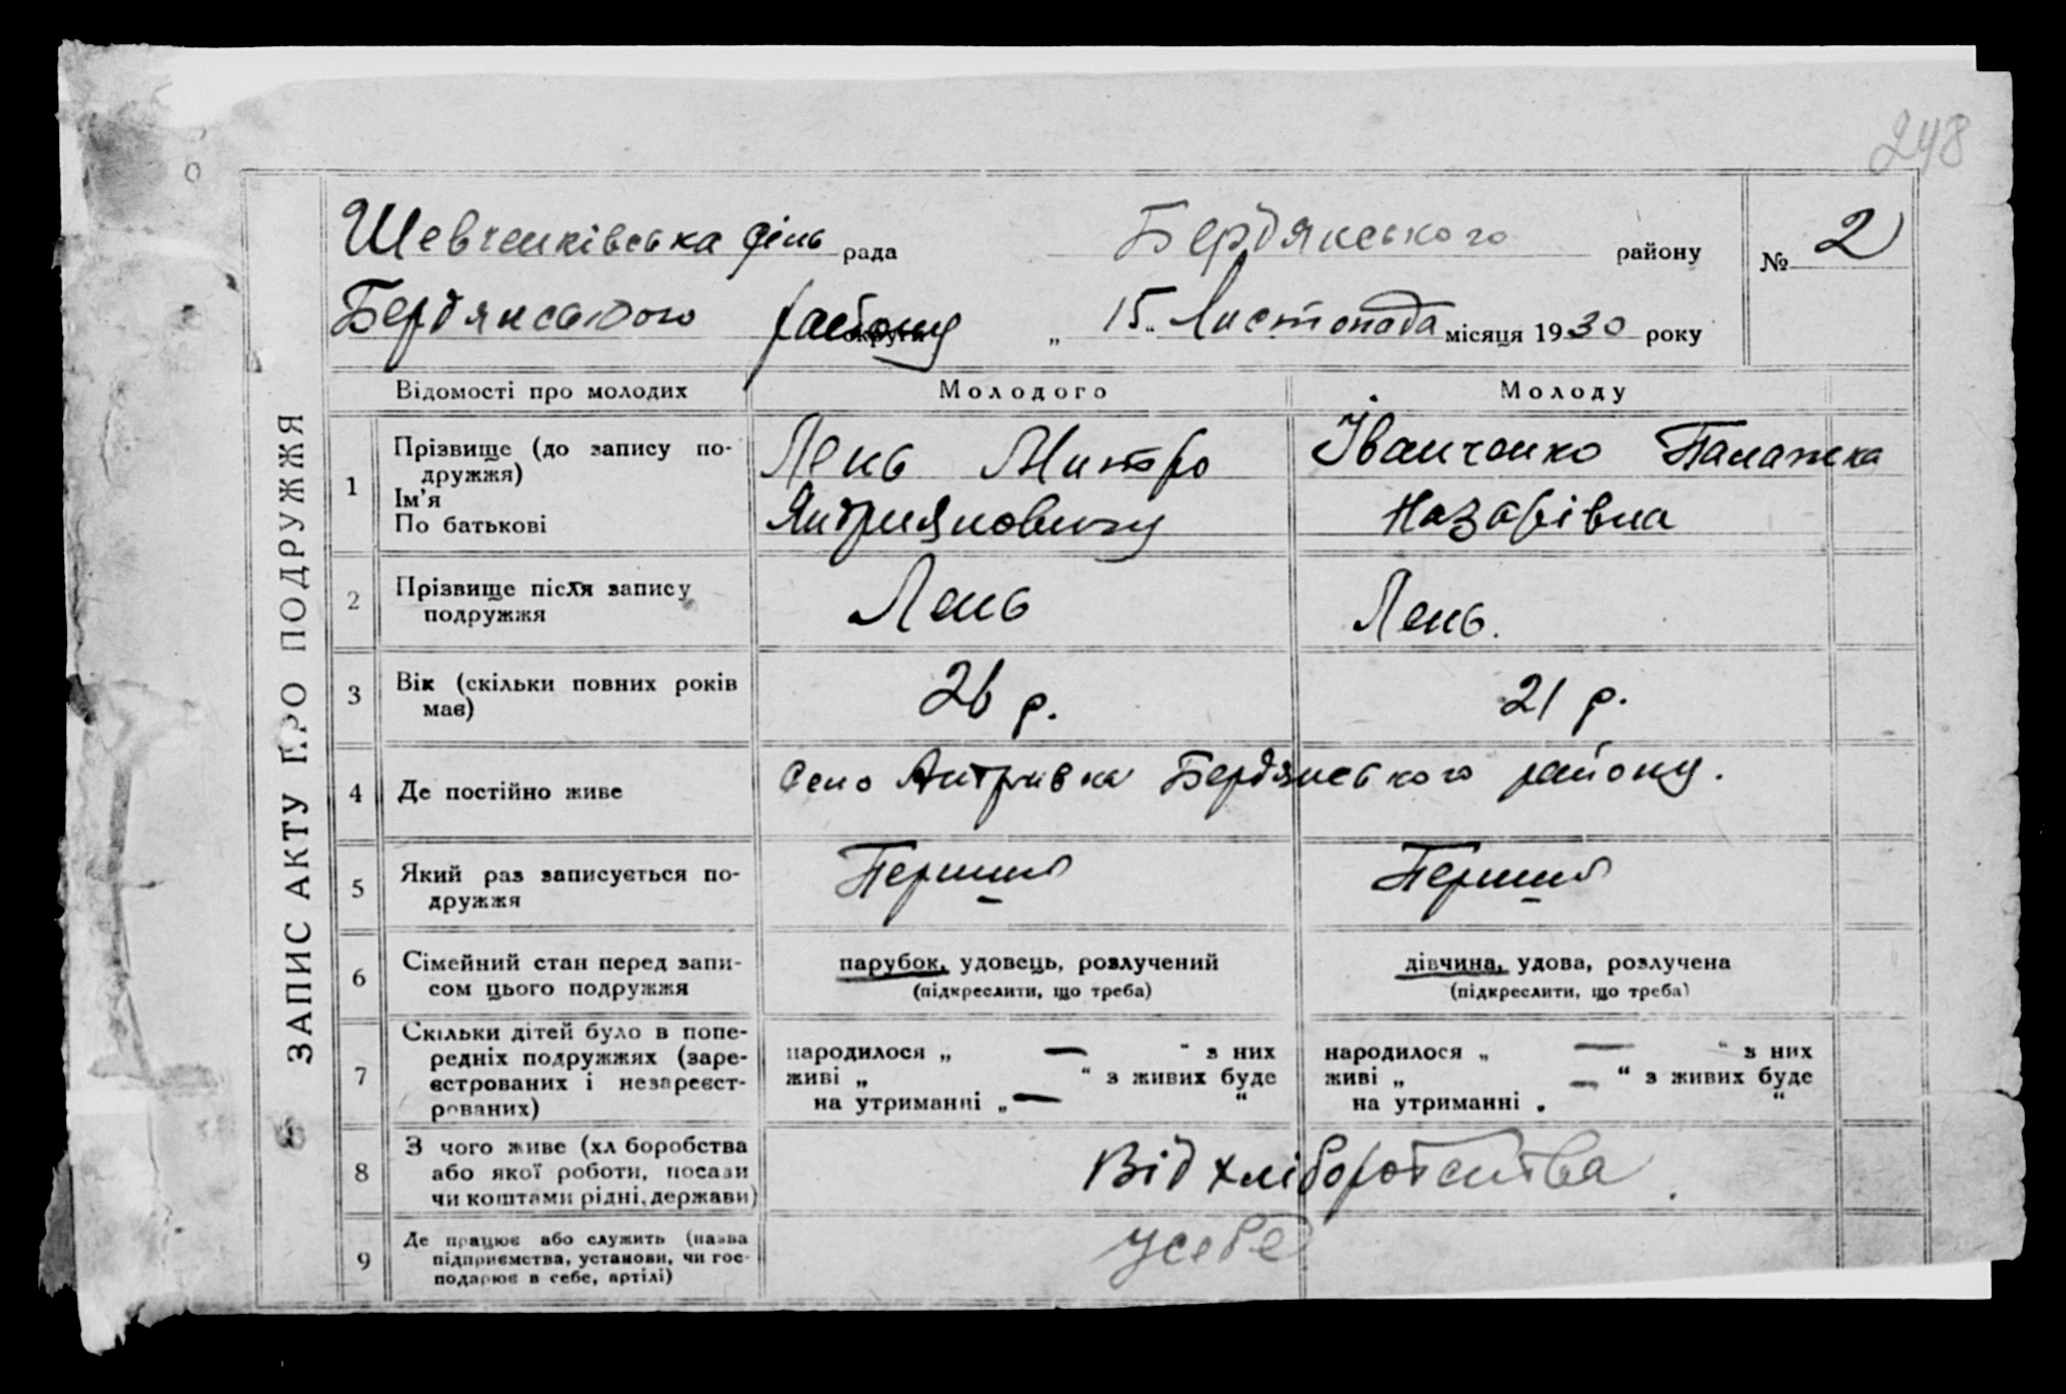 248
ЗАПИС АКТУ ПРО ПОДРУЖЖЯ
Шевченківська сіль рада Бердянського району № 2
Бердянського району „ 15 “ Листопада місяця 1930 року
Відомості про молодих Молодого Молоду
1 Прізвище (до запису подружжя) Ім'я По батькові
Лень Митро
Андріяновичу
Іванченко Палажка
Назарівна
2 Прізвище після запису
подружжя
Лень Лень.
3 Вік (скільки повних років
має)
26 р. 21 р.
4 Де постійно живе
Село Бердянського району.
5 Який раз записується по-
дружжя
Перший Перший
6 Сімейний стан перед запи-
сом цього подружжя
парубок, удовець, розлучений
(підкреслити, що треба)
дівчина, удова, розлучена
(підкреслити, що треба)
7 Скільки дітей було в попе-
редніх подружжях (заре-
єстрованих і незареєст-
рованих)
народилося „ — “ з них
живі „ “ з живих буде
на утриманні „ — “
народилося „ — “ з них
живі „ — “ з живих буде
на утриманні „ “
8 З чого живе (хл боробства
або якої роботи, посади
чи коштами рідні, держави)
Від хліборобства.
9 Де працює або служить (назва
підприємства, установи, чи гос-
подарює в себе, артілі)
усебе